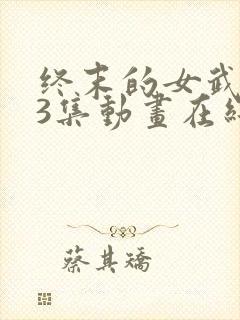 終末的女武
3集動畫在線
蔡其矯